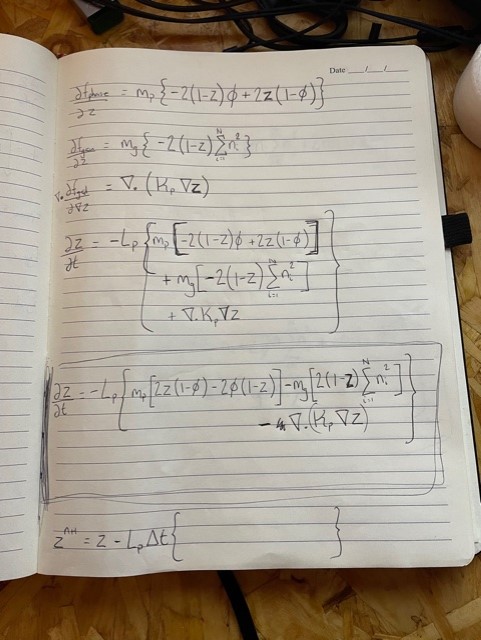 Date __/__/__
∂f_phase/∂z = m_p{-2(1-z)φ + 2z(1-φ)}
∂f_grain/∂z = m_g{-2(1-z) Σ_{i=1}^{N} n_i^2}
∇. ∂f_gd/∂∇z = ∇. (K_p ∇z)
∂z/∂t = -L_p {m_p[-2(1-z)φ + 2z(1-φ)]
+ m_g[-2(1-z) Σ_{i=1}^{N} n_i^2]
+ ∇. K_p ∇z}
∂z/∂t = -L_p {m_p[2z(1-φ) - 2φ(1-z)] - m_g[2(1-z) Σ_{i=1}^{N} n_i^2]
- ∇. (K_p ∇z)}
z^{n+1} = z - L_p Δt{ }